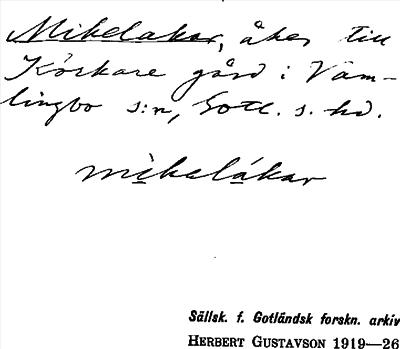 Mikelakar, åker till
Körkare gård i Vam-
lingbo s:n, Gotl. s. hd.
mìkelákar
Sällsk. f. Gotländsk forskn. arkiv
HERBERT GUSTAVSON 1919—26